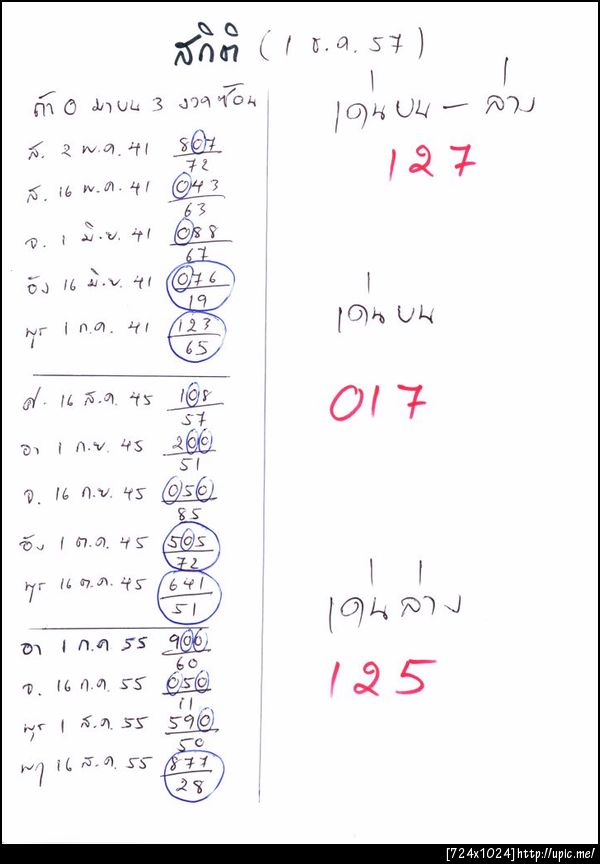 สถิติ (1 ธ.ค. 57)
ถ้า 0 มาบน 3 งวดซ้อน
ส. 2 พ.ค. 41 807
72
ส. 16 พ.ค. 41 043
63
จ. 1 มิ.ย. 41 088
67
อัง 16 มิ.ย. 41 076
19
พุธ 1 ก.ค. 41 123
65
ศ. 16 ส.ค. 45 108
57
อา 1 ก.ย. 45 200
51
จ. 16 ก.ย. 45 050
85
อัง 1 ต.ค. 45 505
72
พุธ 16 ต.ค. 45 641
51
อา 1 ก.ค 55 900
60
จ. 16 ก.ค. 55 050
11
พุธ 1 ส.ค. 55 590
50
พฤ 16 ส.ค. 55 877
28
เด่นบน - ล่าง
127
เด่นบน
017
เด่นล่าง
125
[724x1024]http://upic.me/